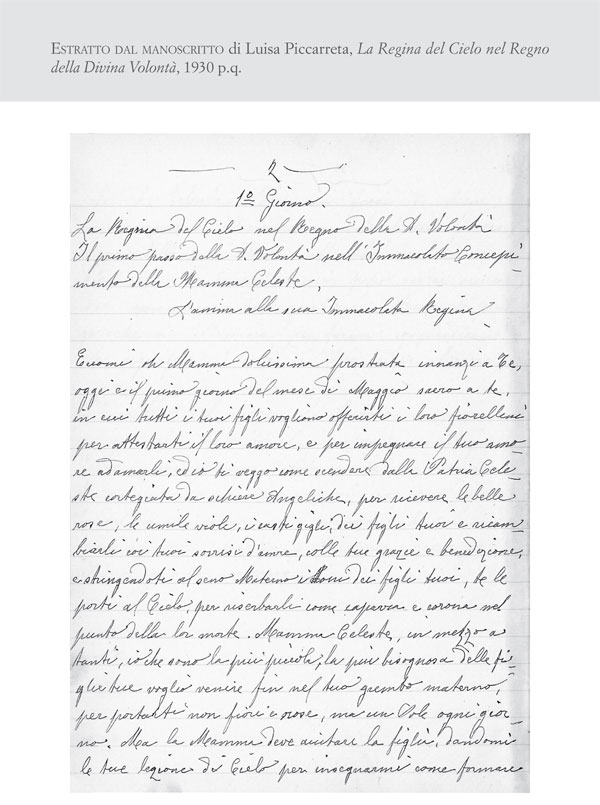 ESTRATTO DAL MANOSCRITTO di Luisa Piccarreta, La Regina del Cielo nel Regno
della Divina Volontà, 1930 p.q.
2
1º Giorno.
La Regina del Cielo nel Regno della D. Volontà
Il primo passo della D. Volontà nell'Immacolato Concepi
mento della Mamma Celeste,
L'anima alla sua Immacolata Regina
Eccomi oh Mamma dolcissima prostrata innanzi a Te,
oggi è il primo giorno del mese di Maggio sacro a te,
in cui tutti i tuoi figli vogliono offerirti i loro fiorellini
per attestarti il loro amore, e per impegnare il tuo amo
re ad amarli, ed io ti veggo come scendere dalla Patria Cele
ste corteggiata da schiere Angeliche, per ricevere le belle
rose, le umile viole, i casti gigli, dei figli tuoi e ricam
biarli coi tuoi sorrisi d'amore, colle tue grazie e benedizione,
e stringendoti al seno Materno i doni dei figli tuoi, te le
porti al Cielo, per riserbarli come caparra e corona nel
punto della lor morte. Mamma Celeste, in mezzo a
tanti, io che sono la più piccola, la più bisognosa delle fi
glie tue voglio venire fin nel tuo grembo materno,
per portarti non fiori e rose, ma un Sole ogni gior
no. Ma la Mamma deve aiutare la figlia, dandomi
le tue lezione di Cielo per insegnarmi come formare